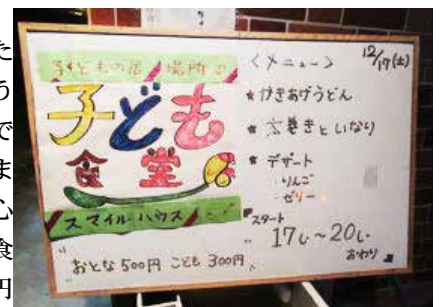 た
う
で
ま
心
食
円
子どもの居場所
子ども
食堂
スマイルハウス
おとな500円 こども300円
12/17(土)
<メニュー>
★かきあげうどん
★太巻きといなり
★デザート
りんご
ゼリー
スタート
17し〜20し
おわり